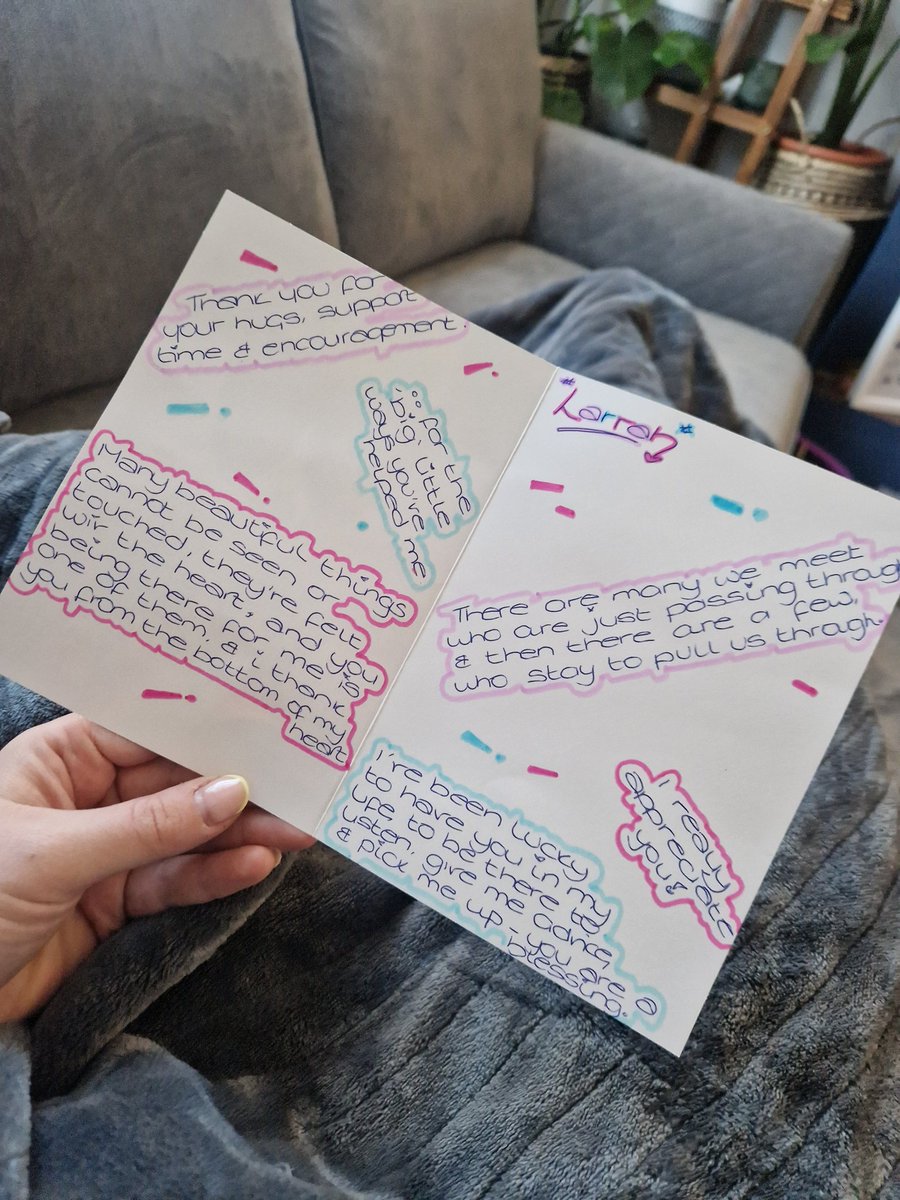 Thank you for
your hugs, support
time & encouragement.
for the
big, little
you've
helped me
Many beautiful things
cannot be seen or
touched, they're felt
wiv the heart, and you
being there for me is
one of them, & i thank
you from the bottom of my
heart
*Larrah*
There are many we meet
who are just passing through
& then there are a few,
who stay to pull us through.
I've been lucky
to have you in my
life to be there to
listen, give me advice,
& pick me up - you are a
blessing.
i really
appreciate
you